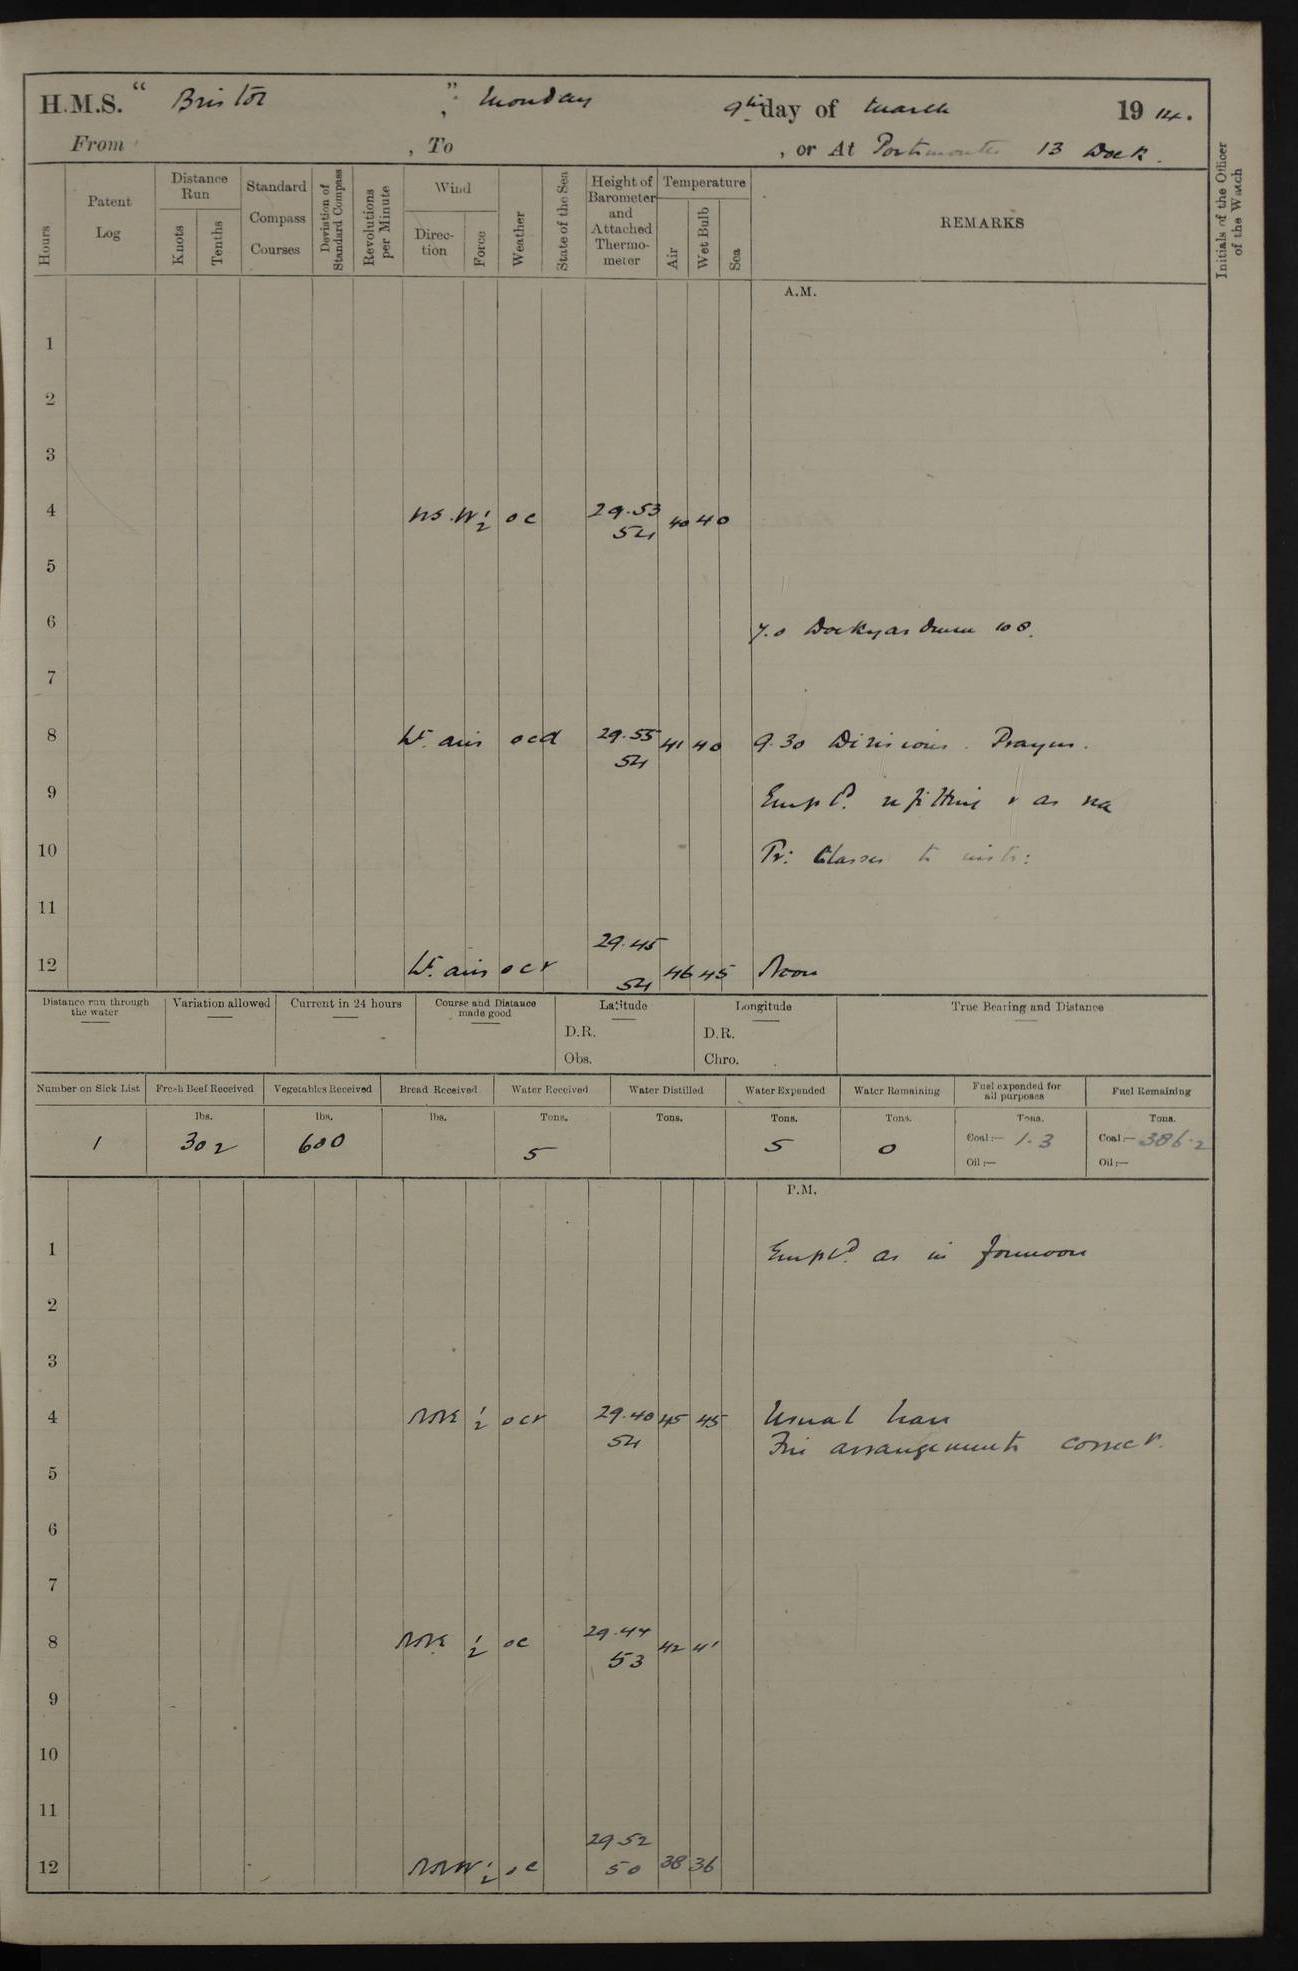 H.M.S. " Bristol ", Monday 9th day of March 1914.
From , To , or At Portsmouth 13 Dock.
Hours
Patent Log
Distance Run
Knots
Tenths
Standard Compass Courses
Deviation of Standard Compass
Revolutions per Minute
Wind
Direction
Force
Weather
State of the Sea
Height of Barometer and Attached Thermometer
Temperature
Air
Wet Bulb
Sea
REMARKS
Initials of the Officer of the Watch
A.M.
1
2
3
4 ½ oc 29.53 40 40
54
5
6 7.0 Dockyard 108.
7
8 Lt. airs ocd 29.55 41 40 9.30 Divisions. Prayers.
54
9 Empld. refitting & as na
10 Classes to instr:
11
29.45
12 Lt. airs ocr 46 45 Noon
54
Distance run through the water
Variation allowed
Current in 24 hours
Course and Distance made good
Latitude
D.R.
Obs.
Longitude
D.R.
Chro.
True Bearing and Distance
Number on Sick List
Fresh Beef Received
Vegetables Received
Bread Received
Water Received
Water Distilled
Water Expended
Water Remaining
Fuel expended for all purposes
Fuel Remaining
lbs. lbs. lbs. Tons. Tons. Tons. Tons. Tons. Tons.
1 302 600 5 5 0 Coal:— 1.3 Coal:— 386.2
Oil:— Oil:—
P.M.
1 Empld. as in forenoon
2
3
4 NNE ½ ocr 29.40 45 45 Usual
54 Fire arrangements correct.
5
6
7
8 NNE ½ oc 29.44 42 41
53
9
10
11
29 52
12 NNW ½ oc 50 38 36